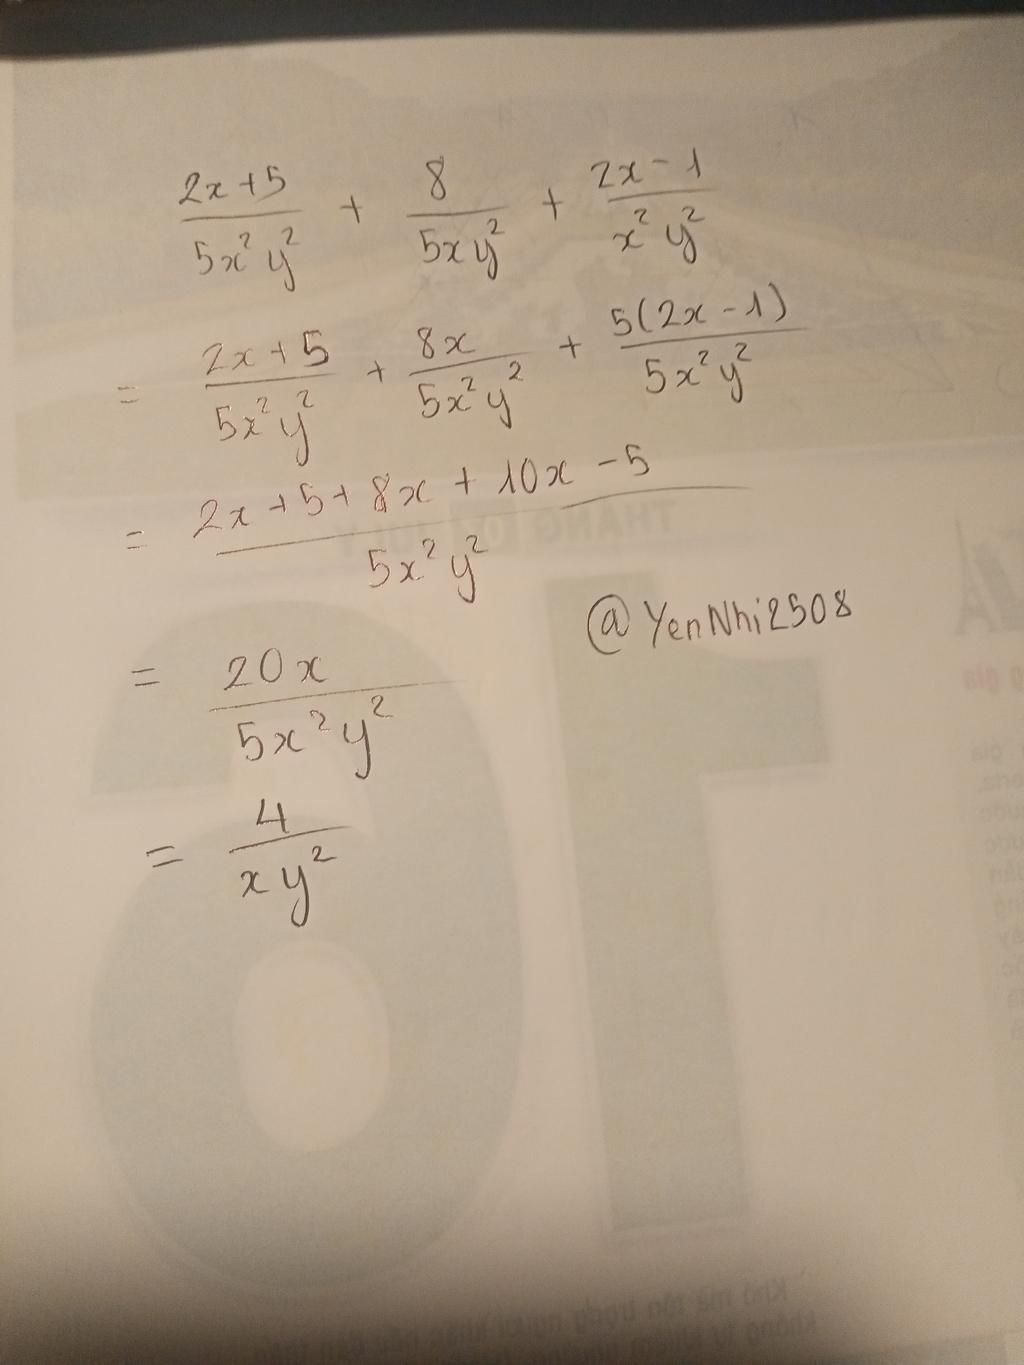 (2x+5)/(5x²y²) + 8/(5xy²) + (2x-1)/(x²y²)
= (2x+5)/(5x²y²) + 8x/(5x²y²) + 5(2x-1)/(5x²y²)
= (2x+5+8x+10x-5)/(5x²y²)
@YenNhi2508
= 20x/(5x²y²)
= 4/(xy²)